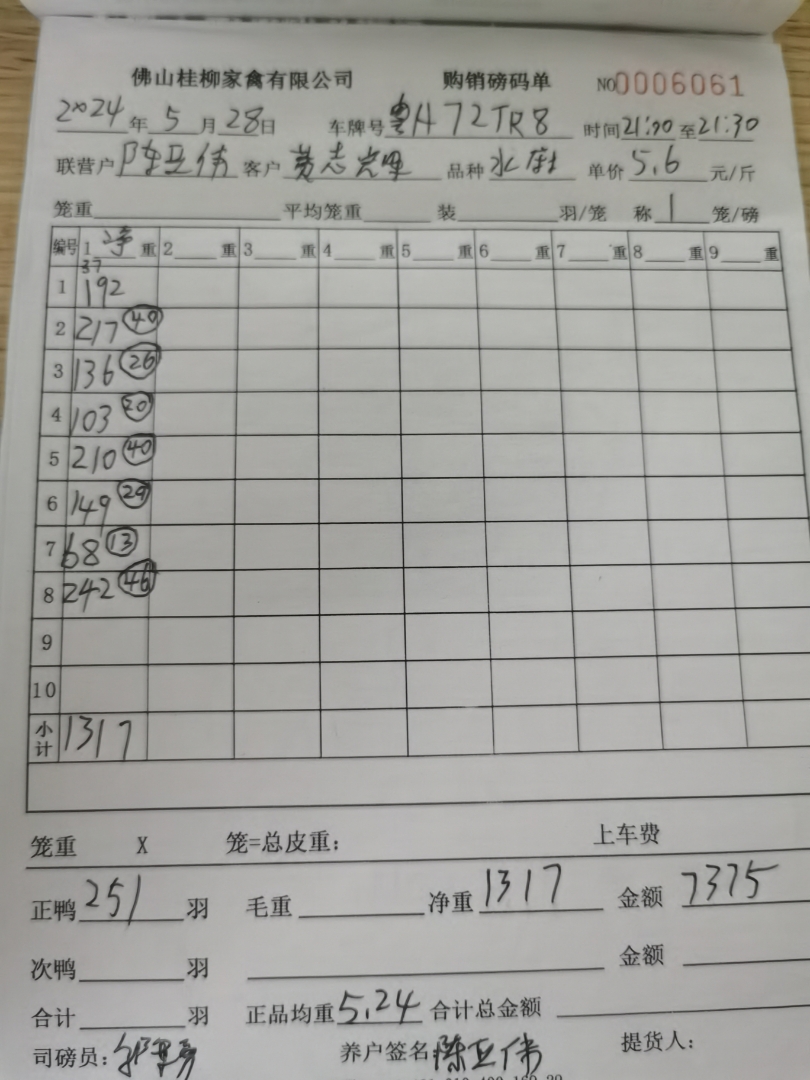 佛山桂柳家禽有限公司 购销磅码单 NO0006061
2024年5月28日 车牌号粤H72TR8 时间21:00至21:30
联营户陈亚伟 客户黄志 品种水鸭 单价5.6元/斤
笼重 平均笼重 装 羽/笼 称1笼/磅
编号 1净重 2 重 3 重 4 重 5 重 6 重 7 重 8 重 9 重
37
1 192
2 217 40
3 136 26
4 103 20
5 210 40
6 149 29
7 68 13
8 242 46
9
10
小计 1317
笼重 X 笼=总皮重: 上车费
正鸭251羽 毛重 净重1317 金额7375
次鸭 羽 金额
合计 羽 正品均重5.24 合计总金额
司磅员: 养户签名:陈亚伟 提货人: